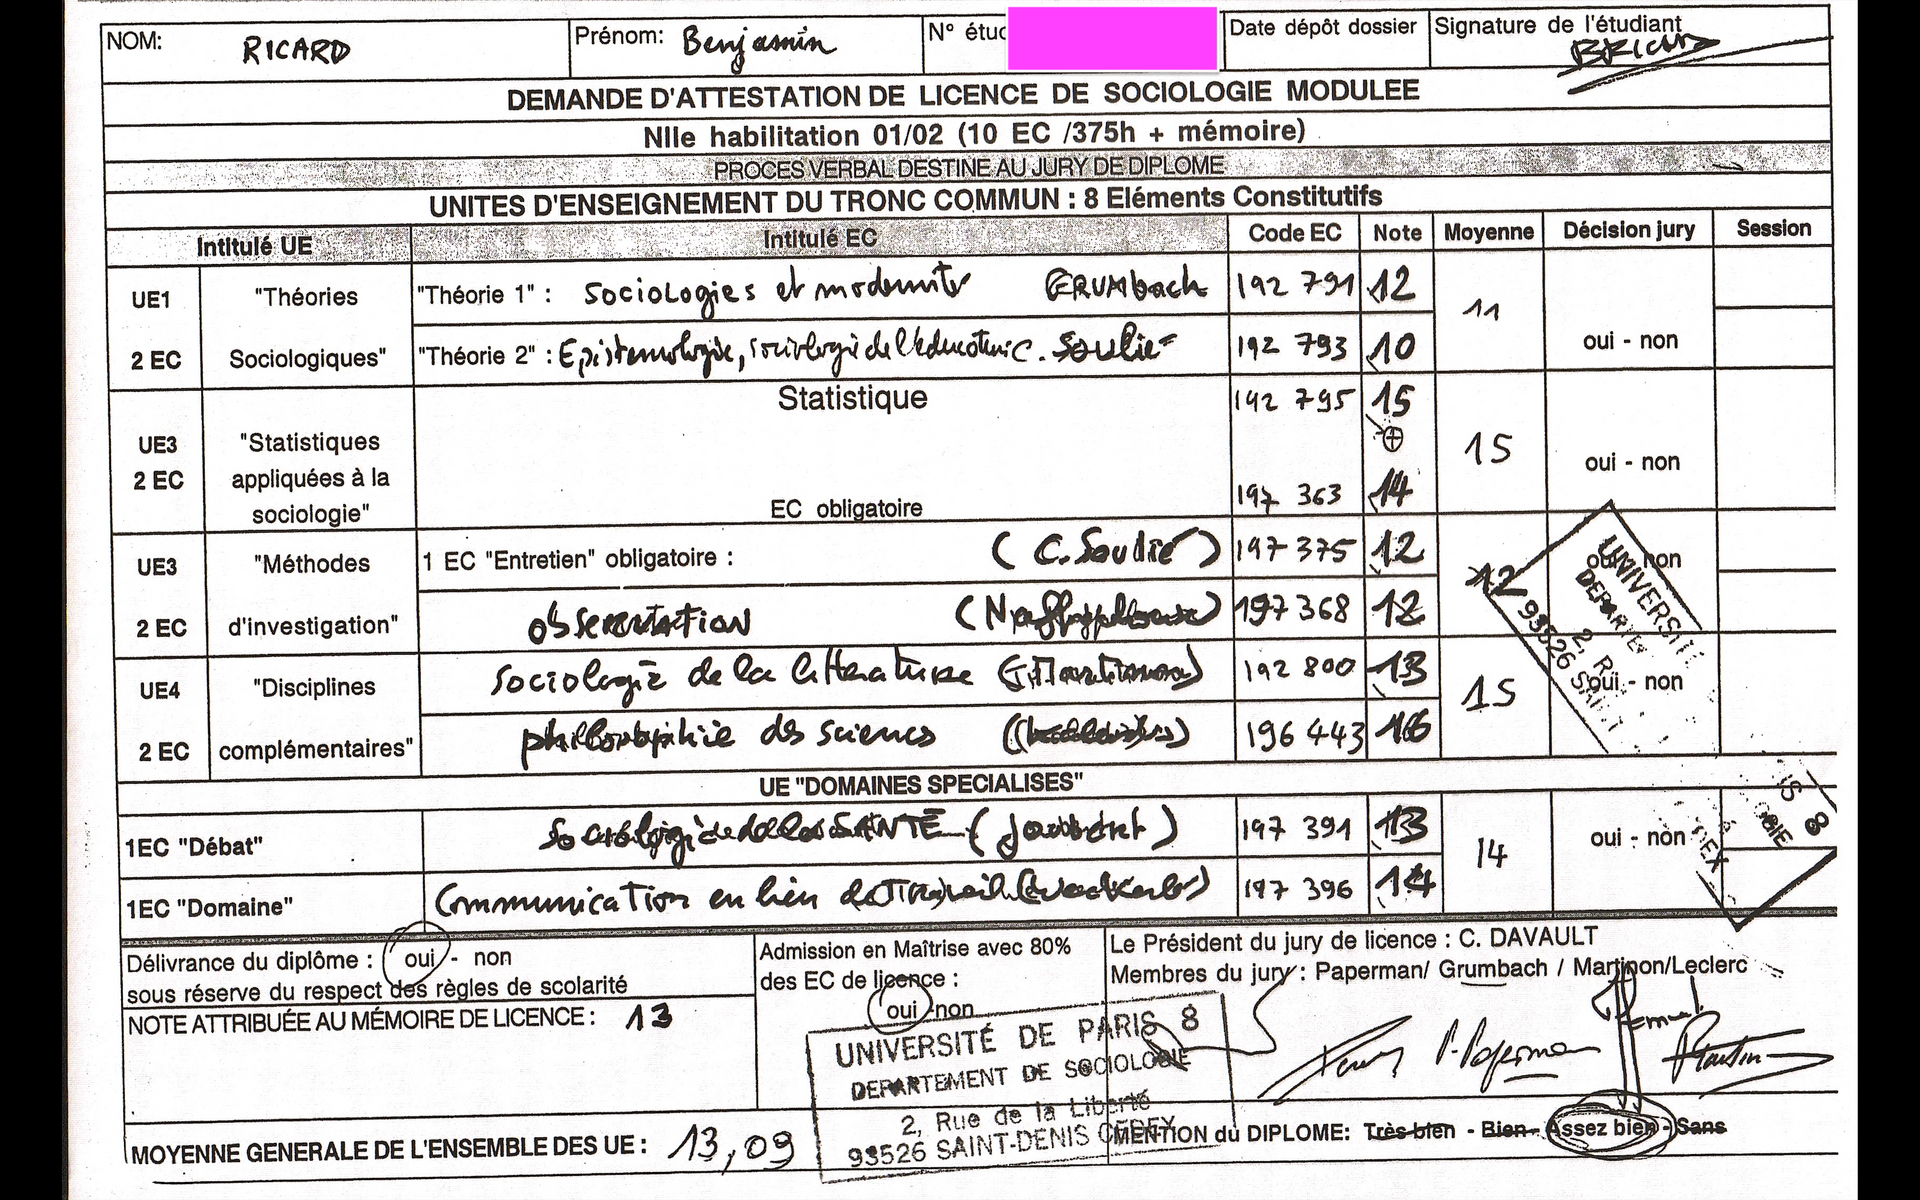 NOM: RICARD Prénom: Benjamin N° étuc Date dépôt dossier Signature de l'étudiant
BRICARD
DEMANDE D'ATTESTATION DE LICENCE DE SOCIOLOGIE MODULEE
Nlle habilitation 01/02 (10 EC /375h + mémoire)
PROCES VERBAL DESTINE AU JURY DE DIPLOME
UNITES D'ENSEIGNEMENT DU TRONC COMMUN : 8 Eléments Constitutifs
Intitulé UE Intitulé EC Code EC Note Moyenne Décision jury Session
UE1 "Théories "Théorie 1" : sociologies et modernité GRUMbach 192 791 12 11
2 EC Sociologiques" "Théorie 2" : Epistemologie, sociologie de l'éducation C. Soulié 192 793 10 oui - non
Statistique 192 795 15
UE3 "Statistiques 15 oui - non
2 EC appliquées à la
sociologie" EC obligatoire 197 363 14
UE3 "Méthodes 1 EC "Entretien" obligatoire : (C. Soulié) 197 375 12 12 oui - non
2 EC d'investigation" observation 197 368 12
UE4 "Disciplines sociologie de la litterature (Martinon) 192 800 13 15 oui - non
2 EC complémentaires" philosophie des sciences 196 443 16
UE "DOMAINES SPECIALISES"
1EC "Débat" sociologie de la SANTÉ (Joubert) 197 391 13 14 oui - non
1EC "Domaine" Communication en lien de Travail 197 396 14
Délivrance du diplôme : oui - non
sous réserve du respect des règles de scolarité
NOTE ATTRIBUÉE AU MÉMOIRE DE LICENCE : 13
Admission en Maîtrise avec 80%
des EC de licence :
oui - non
Le Président du jury de licence : C. DAVAULT
Membres du jury : Paperman/ Grumbach / Martinon/Leclerc
P. Paperman
UNIVERSITÉ DE PARIS 8
DEPARTEMENT DE SOCIOLOGIE
2, Rue de la Liberté
93526 SAINT-DENIS CEDEX
MOYENNE GENERALE DE L'ENSEMBLE DES UE : 13,09
MENTION du DIPLOME: Très bien - Bien - Assez bien - Sans